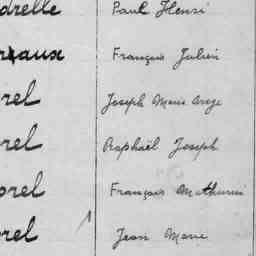 drelle Paul Henri
reaux François Julien
rel Joseph Marie Ange
rel Raphaël Joseph
orel François Mathurin
orel Jean Marie